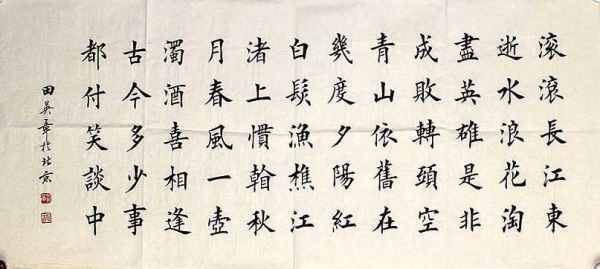 滚滾長江東
逝水浪花淘
盡英雄是非
成敗轉頭空
青山依舊在
幾度夕陽紅
白髮漁樵江
渚上慣翰秋
月春風一壺
濁酒喜相逢
古今多少事
都付笑談中
田英章於北京